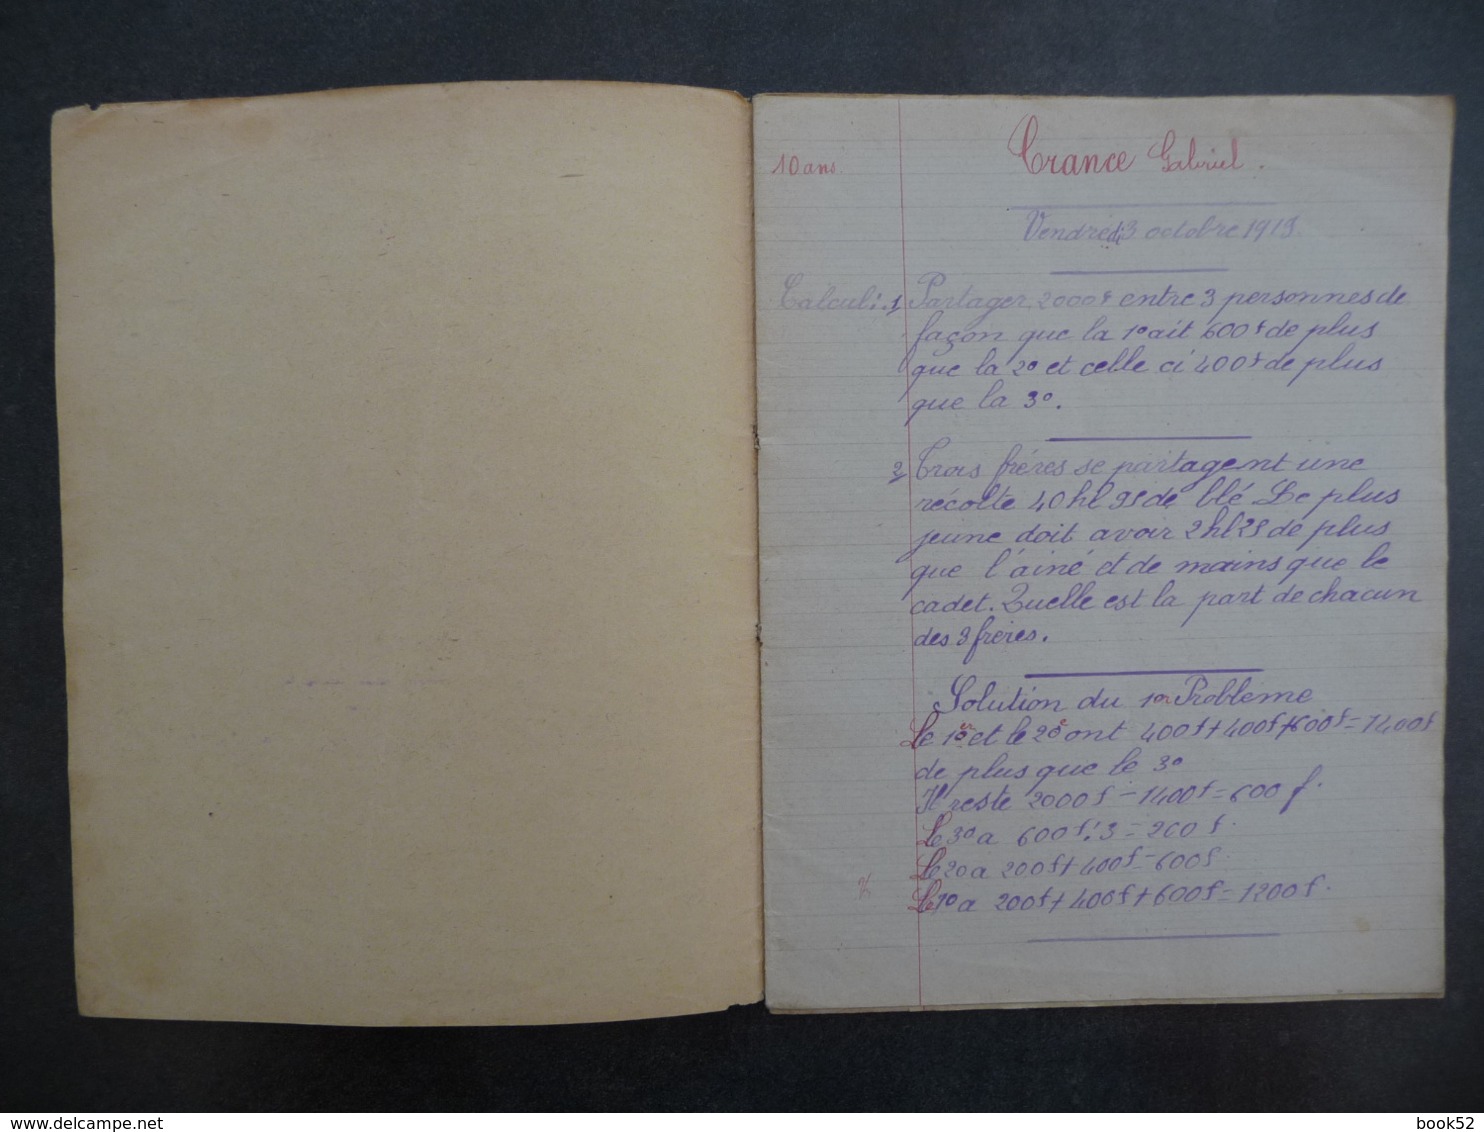 10 ans.
Trance Gabriel.
Vendredi 3 octobre 1919.
Calcul: 1 Partager 2000f entre 3 personnes de
façon que la 1º ait 600f de plus
que la 2º et celle ci 400f de plus
que la 3º.
2 Trois frères se partagent une
récolte 40hl 95 de blé Le plus
jeune doit avoir 2hl25 de plus
que l'ainé et de moins que le
cadet. Quelle est la part de chacun
des 3 frères.
Solution du 1er Problème
Le 1er et le 2e ont 400f+400f+600f=1400f
de plus que le 3º
Il reste 2000f-1400f=600f.
Le 3º a 600f:3=200f.
Le 2º a 200f+400f=600f.
Le 1º a 200f+400f+600f=1200f.
delcampe.net
book52